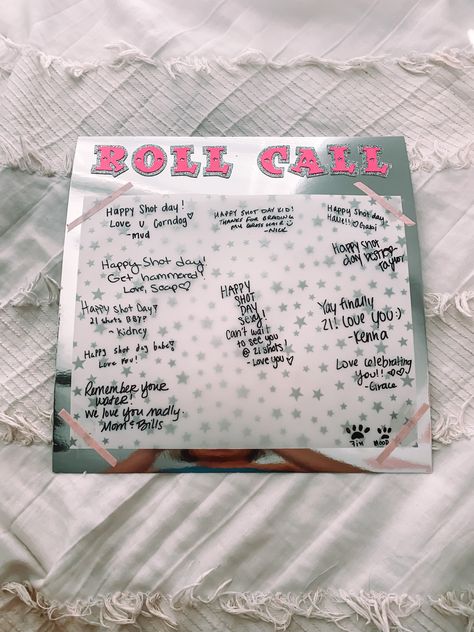 ROLL CALL
Happy Shot day!
Love u Corndog
-mud
HAPPY SHOT DAY KID!
THANKS FOR BRAIDING
MY GROSS HAIR
-NICK
Happy Shot day
Happy Shot
day
Taylor
Happy Shot day!
Get hammered!
Love, Soap
HAPPY
SHOT
DAY
SEXY!
Can't wait
to see you
@ 21 shots!
-Love you
Happy Shot Day!
21 shots
-Kidney
Yay finally
21! Love you :)
-Kenna
Happy shot day babe
Love
Love celebrating
you!!
-Grace
Remember your
water!
We love you madly.
Mom & Bills